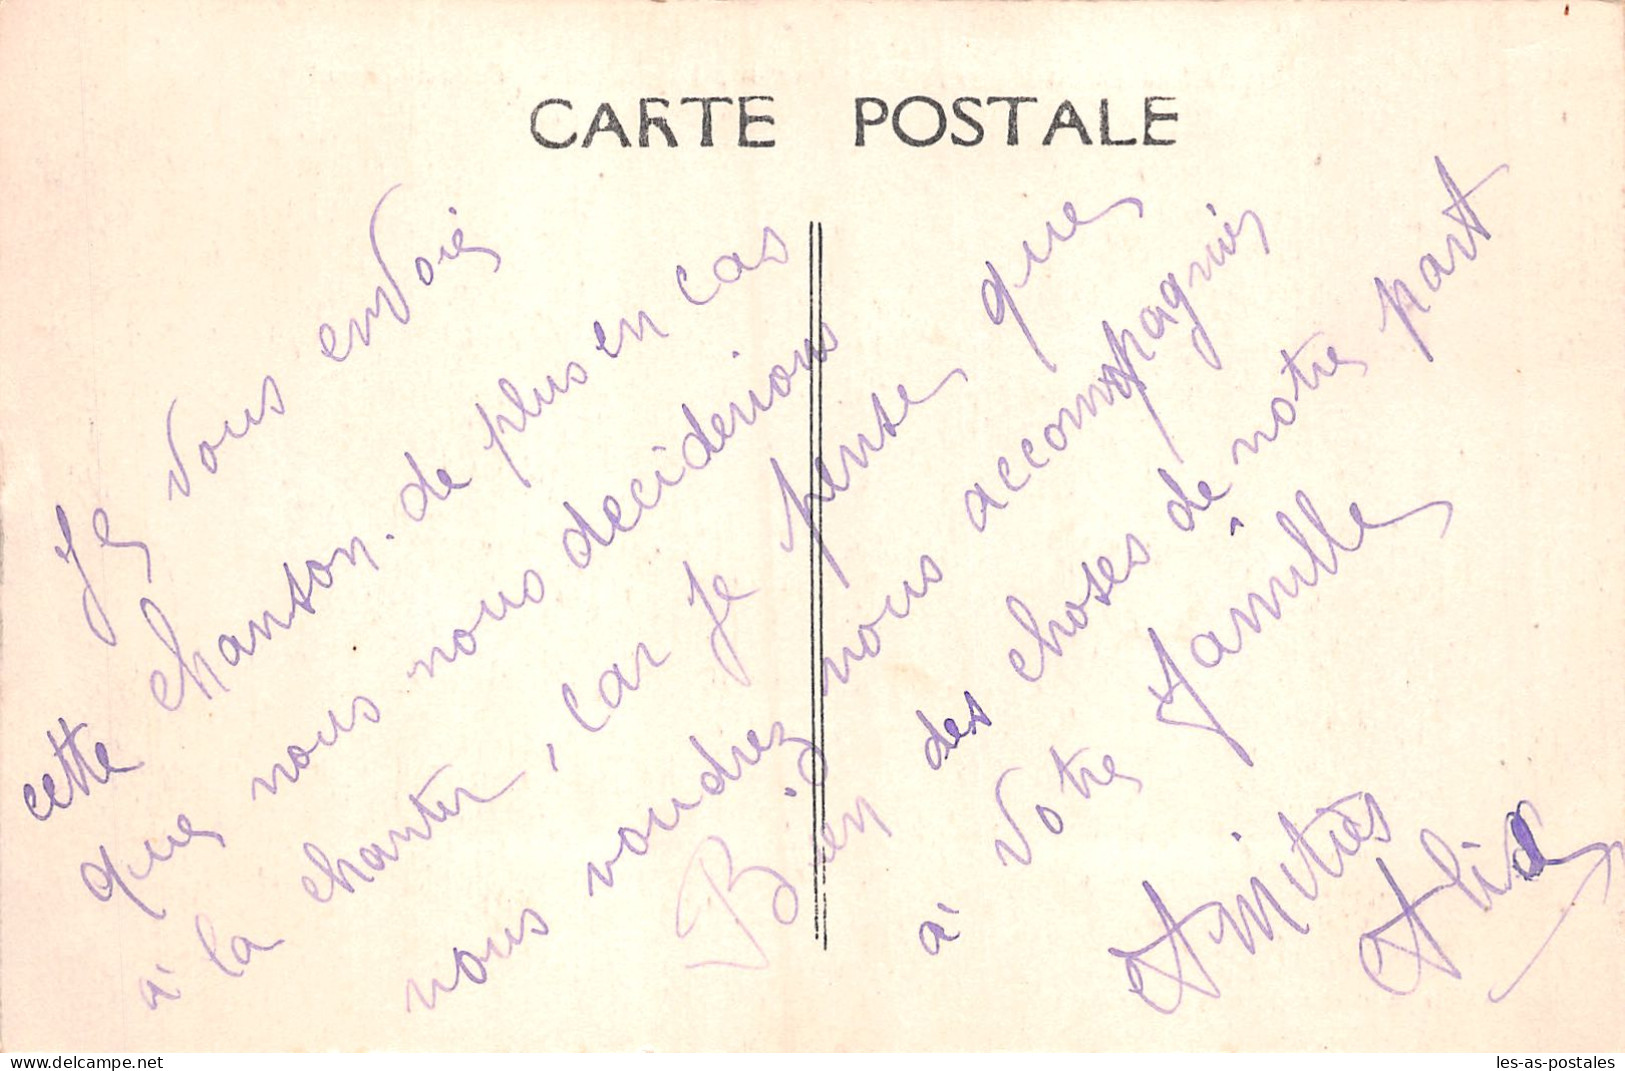 CARTE POSTALE
Je vous envoie
cette chanson de plus en cas
que nous nous deciderions
à la chanter, car je pense que
nous voudrez nous accompagnies
Bien des choses de notre part
à votre famille
Amitiés
les-as-postales